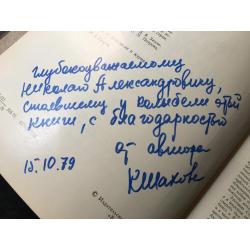 глубокоуважаемому
Николаю Александровичу,
стоявшему у колыбели этой
книги, с благодарностью
от автора
15.10.79